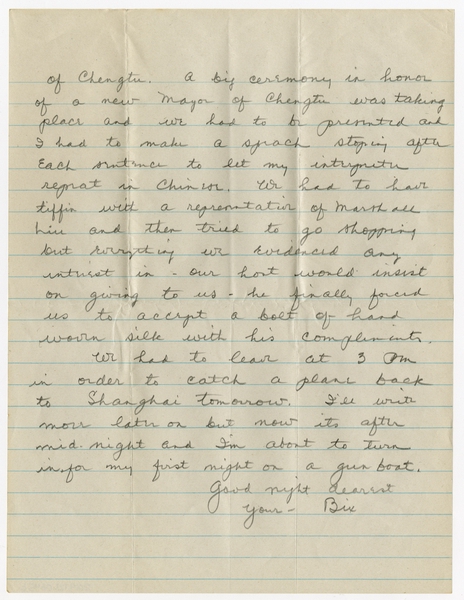 of Chengtu. A big ceremony in honor
of a new Mayor of Chengtu was taking
place and we had to be presented and
I had to make a speach stoping after
Each sentence to let my interpreter
repeat in Chinese. We had to have
tiffin with a representative of Marshall
Liu and then tried to go shopping
but everything we evidenced any
intrest in - our host would insist
on giving to us - he finally forced
us to accept a bolt of hand
woven silk with his compliments.
We had to leave at 3 PM
in order to catch a plane back
to Shanghai tomorrow. I'll write
more later on but now its after
mid-night and I'm about to turn
in for my first night on a gun boat.
Good night dearest
Your - Bix